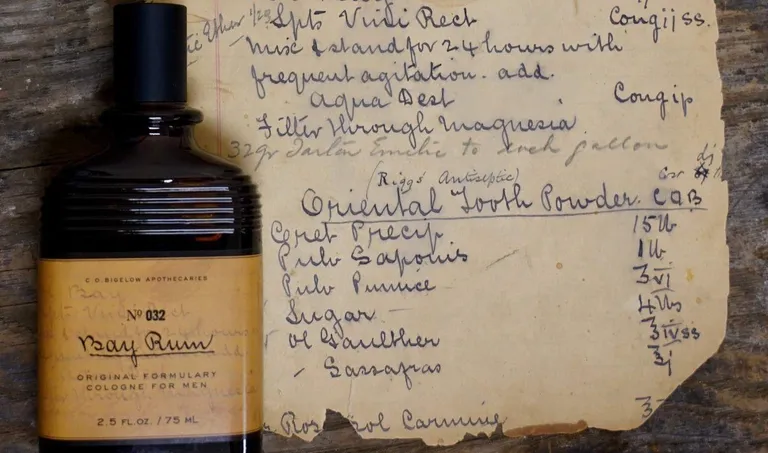 C.O. BIGELOW APOTHECARIES
Nº 032
Bay Rum
ORIGINAL FORMULARY
COLOGNE FOR MEN
2.5 FL.OZ. / 75 ML
Ether
Spts Vini Rect Congijss.
Mix & stand for 24 hours with
frequent agitation. add.
Aqua Dest Congip
Filter through Magnesia
32gr Tartar Emetic to each gallon
(Riggs' Antiseptic)
Oriental Tooth Powder. C.O.B
Cret Precip 15lb
Pulv Saponis 1lb
Pulv Pumice ℥vi
Sugar 4lbs
Ol Gaulther ℥ivss
" Sassafras ℥i
Carmine